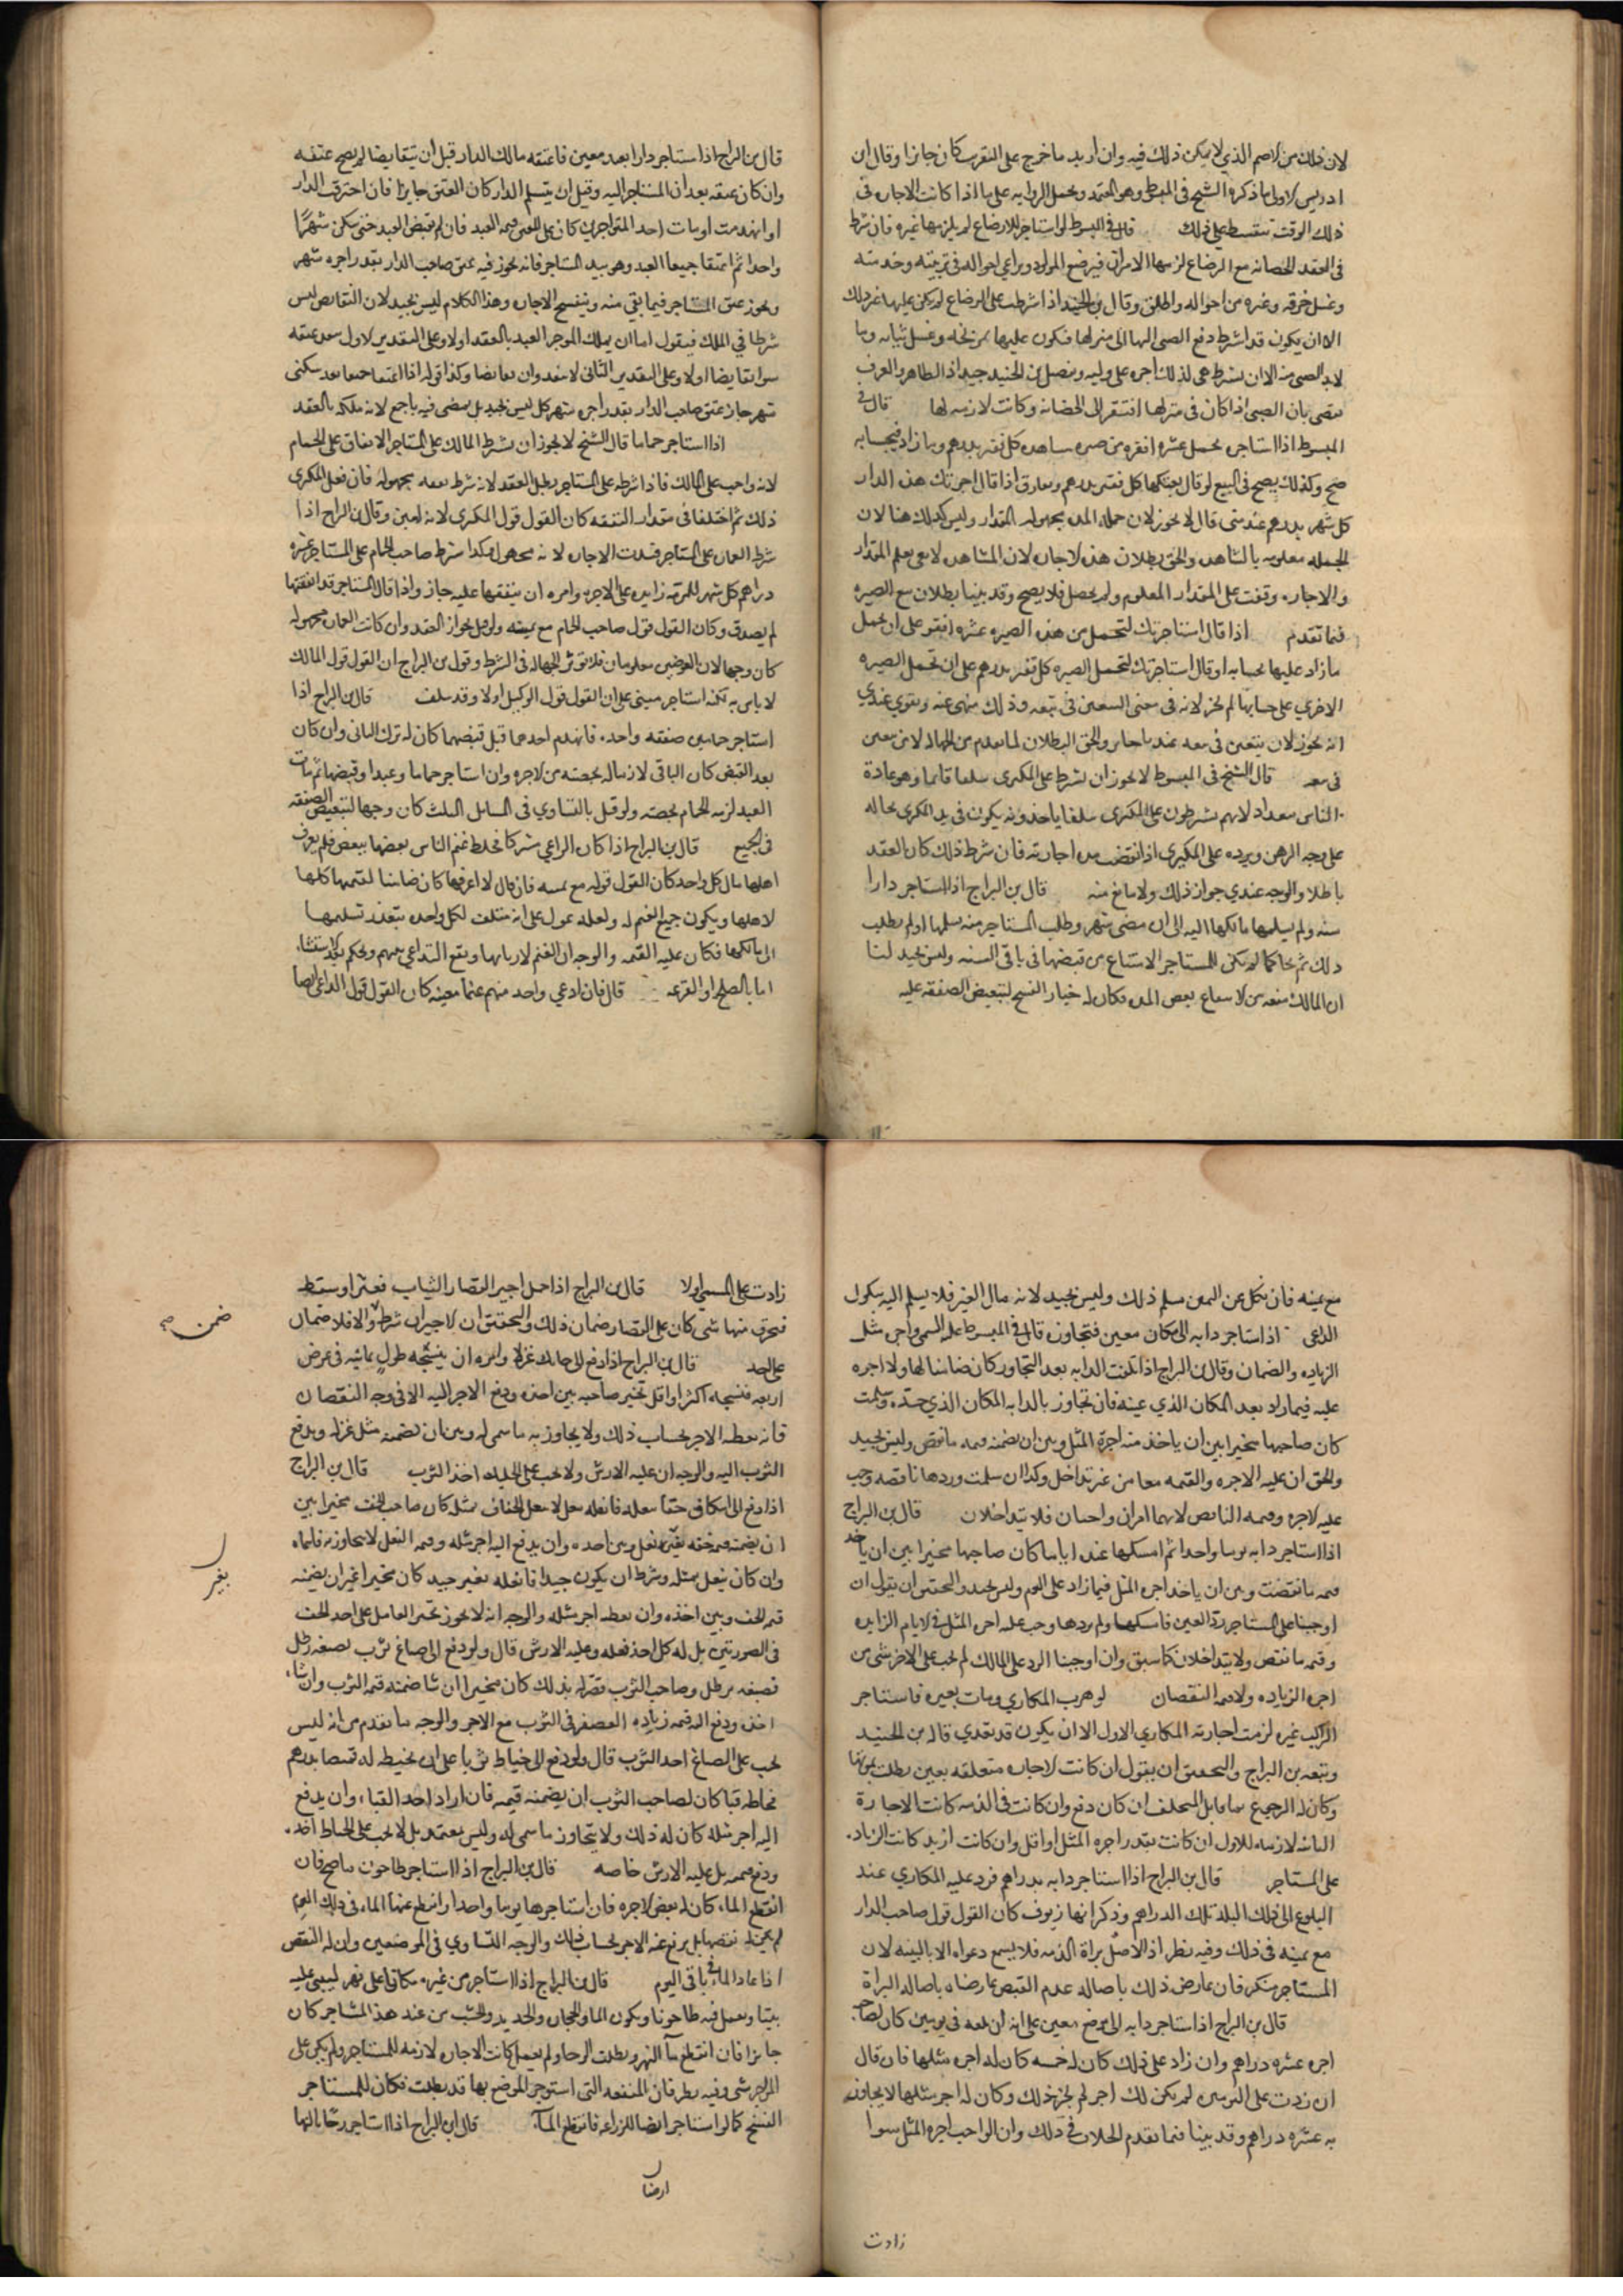 لان ذلك من الاصم الذي لا يمكن ذلك فيه وان اريد ما خرج على التقريب كان جائزا وقال ابن
ادريس الاولى ما ذكره الشيخ في المبسوط وهو المعتمد ويحمل الرواية على ما اذا كانت الاجارة في
ذلك الوقت تتقسط على ذلك قال في المبسوط لو استاجر للارضاع لم يلزمها غيره فان شرط
في العقد الحضانة مع الرضاع لزمها الامران فيرضع المولود ويراعي احواله في تربيته وخدمته
وغسل خرقه وغيره من احواله واطلق وقال ابن الجنيد اذا اشرطت على الرضاع لم يكن عليها غير ذلك
الا ان يكون قد اشرط دفع الصبي اليها الى منزلها فيكون عليها وغسل ثيابه وما
لابد للصبي منه الا ان يشرط هي لذلك اجره على وليه وتفصيل ابن الجنيد جيد اذ الظاهر والعرف
يقضي بان الصبي اذا كان في منزلها افتقر الى الحضانة وكانت لازمة لها قال في
المبسوط اذا استاجره لحمل عشره اقفزه من صبره مشاهده كل قفيز بدرهم وما زاد فبحسابه
صح وكذلك يصح في البيع لو قال بعتكها كل قفيز بدرهم ويفارق اذا قال اجرتك هذه الدار
كل شهر بدرهم عند من قال لا يجوز لان جملة المدة مجهولة المقدار وليس كذلك هنا لان
الجملة معلومة بالمشاهدة والحق بطلان هذه الاجارة لان المشاهدة لا تفي بعلم المقدار
والاجارة وقفت على المقدار المعلوم ولم يحصل فلا يصح وقد بينا بطلان بيع الصبره
فيما تقدم اذا قال استاجرتك لتحمل من هذه الصبره عشره اقفزه على ان تحمل
ما زاد عليها بحسابه او قال استاجرتك لتحمل الصبره كل قفيز بدرهم على ان تحمل الصبره
الاخري على حسابها لم يجز لانه في معنى البيعتين في بيعه وذلك منهي عنه ويقوي عندي
انه يجوز لان بيعتين في بيعه عندنا جائز والحق البطلان لما تقدم من الجهالة لا من بيعين
في بيعه قال الشيخ في المبسوط لا يجوز ان يشرط على المكري سلفا قائما وهو عادة
الناس ببغداد لانهم يشرطون على المكري سلفا ياخذونه يكون في يد المكري بحاله
على وجه الرهن ويرده على المكتري اذا انقضت مدة اجارته فان شرط ذلك كان العقد
باطلا والوجه عندي جواز ذلك ولا مانع منه قال ابن البراج اذا استاجر دارا
سنه ولم يسلمها مالكها اليه الى ان مضى شهر وطلب المستاجر منه تسلمها او لم يطلب
ذلك ثم تحاكما لم يكن للمستاجر الامتناع من قبضها في باقي السنه وليس بجيد لنا
ان المالك منعه من الانتفاع ببعض المدة فكان له خيار الفسخ لتبعيض الصفقه عليه
قال ابن البراج اذا استاجر دارا بعبد معين فاعتقه مالك الدار قبل ان يتقابضا لم يصح عتقه
وان كان عتقه بعد ان المستاجر اليه وقبل ان يتسلم الدار كان العتق جائزا فان احترقت الدار
او انهدمت او مات احد المتواجرين كان على المعتق قيمة العبد فان لم يقبض العبد حتى سكن شهرا
واحدا ثم اعتقا جميعا العبد وهو بيد المستاجر فانه يجوز فيه عتق صاحب الدار بقدر اجره شهر
ويجوز عتق المستاجر فيما بقي منه وينفسخ الاجارة وهذا الكلام ليس بجيد لان التقابض ليس
شرطا في الملك فيقول اما ان يملك الموجر العبد بالعقد اولا وعلى التقدير الاول ينفذ عتقه
سواء تقابضا اولا وعلى التقدير الثاني لا ينفذ وان تقابضا وكذا قوله اذا اعتقا جميعا بعد سكنى
شهر جاز عتق صاحب الدار بقدر اجره شهر كل ليس بجيد بل يمضي فيه باجمع لانه ملكه بالعقد
اذا استاجر حماما قال الشيخ لا يجوز ان يشرط المالك على المستاجر الانفاق على الحمام
لانه واجب على المالك فاذا شرطه على المستاجر بطل العقد لانه شرط نفقه مجهوله فان فعل المكري
ذلك ثم اختلفا في مقدار النفقه كان القول قول المكري لانه امين وقال ابن البراج اذا
شرط العمارة على المستاجر فسدت الاجارة لانه مجهول وكذا اشرط صاحب الحمام على المستاجر عشره
دراهم كل شهر للمرمة زايده على الاجره وامره ان ينفقها عليه جاز واذا قال المستاجر قد انفقتها
لم يصدق وكان القول قول صاحب الحمام مع يمينه ولو قيل بجواز العقد وان كانت العمارة مجهوله
كان وجها لان العوضين معلومان فلا توثر الجهالة في الشرط وقول ابن البراج ان القول قول المالك
لا باس به لكنه استاجر مبني على ان القول قول الوكيل اولا وقد سلف قال ابن البراج اذا
استاجر حمامين صفقه واحده فانهدم احدهما قبل قبضهما كان له ترك الباقي وان كان
بعد القبض كان الباقي لازما له بحصته من الاجره وان استاجر حماما وعبدا وقبضهما ثم مات
العبد لزمه الحمام بحصته ولو قيل بالتساوي في المسايل الثلث كان وجها لتبعيض الصفقه
في الجميع قال ابن البراج اذا كان الراعي مشتركا فخلط غنم الناس بعضها ببعض فلم يعرف
اهلها مال كل واحد كان القول قوله مع يمينه فان قال لا اعرفها كان ضامنا لقيمتها كلها
لاهلها ويكون جميع الغنم له ولعله عول على انه متلف لكل واحد بتعذر تسليمها
الى مالكها فكان عليه القيمه والوجه ان الغنم لاربابها ويقع التداعي بينهم ويحكم بالاستثناء
اما بالصلح او القرعه قال فان ادعى واحد منهم غنما معينه كان القول قول الراعي ايضا
مع يمينه فان نكل عن اليمين سلم ذلك وليس بجيد لانه مال الغير فلا يسلم اليه بنكول
الراعي اذا استاجر دابه الى مكان معين فتجاوزه قال في المبسوط عليه المسمى واجره مثل
الزيادة والضمان وقال ابن البراج اذا تلفت الدابه بعد التجاوز كان ضامنا لها ولا اجره
عليه فيما زاد بعد المكان الذي عينه فان تجاوز بالدابه المكان الذي حدّه وسلمت
كان صاحبها مخيرا بين ان ياخذ منه اجرة المثل وبين ان يضمنه قيمه ما نقص وليس بجيد
والحق ان عليه الاجره والقيمه معا من غير تداخل وكذا ان سلمت وردها ناقصه وجب
عليه الاجره وقيمه الناقص لانهما امران واجبان فلا يتداخلان قال ابن البراج
اذا استاجر دابه يوما واحدا ثم امسكها عنده اياما كان صاحبها مخيرا بين ان ياخذ
قيمه ما نقصت وبين ان ياخذ اجره المثل فيما زاد على اليوم وليس بجيد والتحقيق ان يقول ان
اوجبنا على المستاجر ردة العين فامسكها ولم يردها وجب عليه اجره المثل في الايام الزايده
وقيمه ما نقص ولا يتداخلان كما سبق وان اوجبنا الرد على المالك لم يجب على الاخر شي من
اجره الزياده ولا قيمه النقصان لو هرب المكاري ومات بعيره فاستاجر
الراكب غيره لزمت اجارته المكاري الاول الا ان يكون قد تعدي قاله ابن الجنيد
وتبعه ابن البراج والتحقيق ان يقول ان كانت الاجاره متعلقه بعين بطلت بموتها
وكان له الرجوع بما قابل المتخلف ان كان دفع وان كانت في الذمه كانت الاجارة
الثانيه لازمه للاول ان كانت بقدر اجره المثل او اقل وان كانت ازيد كانت الزياده
على المستاجر قال ابن البراج اذا استاجر دابه بدراهم فرد عليه المكاري عند
البلوغ الى ذلك البلد تلك الدراهم وذكر انها زيوف كان القول قول صاحب الدار
مع يمينه في ذلك وفيه نظر اذ الاصل براة الذمه فلا يسمع دعواه الا بالبينه لان
المستاجر منكر فان عارض ذلك باصاله عدم القبض عارضناه باصاله البراة
قال ابن البراج اذا استاجر دابه الى موضع معين على انه ان بلغه في يومين كان لصاحبه
اجره عشره دراهم وان زاد على ذلك كان له خمسه كان له اجره مثلها فان قال
ان زدت على اليومين لم يكن لك اجر لم يجز ذلك وكان له اجر مثلها لا يجاوز
به عشره دراهم وقد بينا فيما تقدم الخلاف في ذلك وان الواجب اجره المثل سوا
زادت
زادت على المسمى اولا قال ابن البراج اذا حمل اجير القصار الثياب فعثر او سقط
فتحرق منها شي كان على القصار ضمان ذلك والتحقيق ان الاجير ان شرط والا فلا ضمان
على احد قال ابن البراج اذا دفع الى حائك غزلا وامره ان ينسجه طول ثمانيه في عرض
اربعه فنسجه اكثر او اقل تخير صاحبه بين اخذه ودفع الاجر اليه الا في وجه النقصان
فانه يعطيه الاجر بحساب ذلك ولا يجاوز به ما سمى له وبين ان يضمنه مثل غزله ويدفع
الثوب اليه والوجه ان عليه الارش ولا يجب على الحايك اخذ الثوب قال ابن البراج
اذا دفع الى اسكاف خفا ينعله فانعله بنعل لا ينعل الخفاف بمثله كان صاحب الخف مخيرا بين
ان يضمنه قيمه خفه بغير نعل وبين اخذه وان يدفع اليه اجر مثله وقيمه النعل لا يجاوز به ما سماه
وان كان ينعل بمثله وشرط ان يكون جيدا فانعله بغير جيد كان مخيرا غير ان يضمنه
قيمه الخف وبين اخذه وان يعطيه اجر مثله والوجه انه لا يجوز تخير العامل على اخذ الخف
في الصورتين بل له كل اخذ نعله وعليه الارش قال ولو دفع الى صباغ ثوب يصبغه برطل
فصبغه برطل وصاحب الثوب مقر له بذلك كان مخيرا ان شا ضمنه قيمه الثوب وان شاء
اخذه ودفع اليه قيمه زياده العصفر في الثوب مع الاجر والوجه ما تقدم من انه ليس
يجب على الصباغ اخذ الثوب قال ولو دفع الى خياط ثوبا على ان يخيطه له قميصا بدرهم
فخاطه قبا كان لصاحب الثوب ان يضمنه قيمه فان اراد اخذ القباء وان يدفع
اليه اجر مثله كان له ذلك ولا يتجاوز ما سمى له وليس بمعتمد بل لا يجب على الخياط اخذه
ودفع قيمه بل عليه الارش خاصه قال ابن البراج اذا استاجر طاحونه بما صح فان
انقطع الماء كان له بعض الاجره فان استاجرها يوما واحدا وانقطع عنها الماء في ذلك اليوم
لم يجز له نقضها بل يرفع عنه الاجر بحساب ذلك والوجه التساوي في الموضعين وان له النقض
اذا عاد الماء في باقي اليوم قال ابن البراج اذا استاجر من غيره مكانا على نهر ليبنى عليه
بيتا ويعمل فيه طاحونا ويكون الماء والحجارة والحديد والخشب من عند هذا المستاجر كان
جائزا فان انقطع ما النهر وبطلت الرحا ولم يعمل كانت الاجاره لازمه للمستاجر ولم يكن على
الموجر شي وفيه نظر فان المنفعه التي استوجر الموضع بها قد بطلت فكان للمستاجر
الفسخ كما لو استاجر ارضا للزراعه فانقطع الماء قال ابن البراج اذا استاجر رحا بالتها
ضمن صح
بغير
ارضا